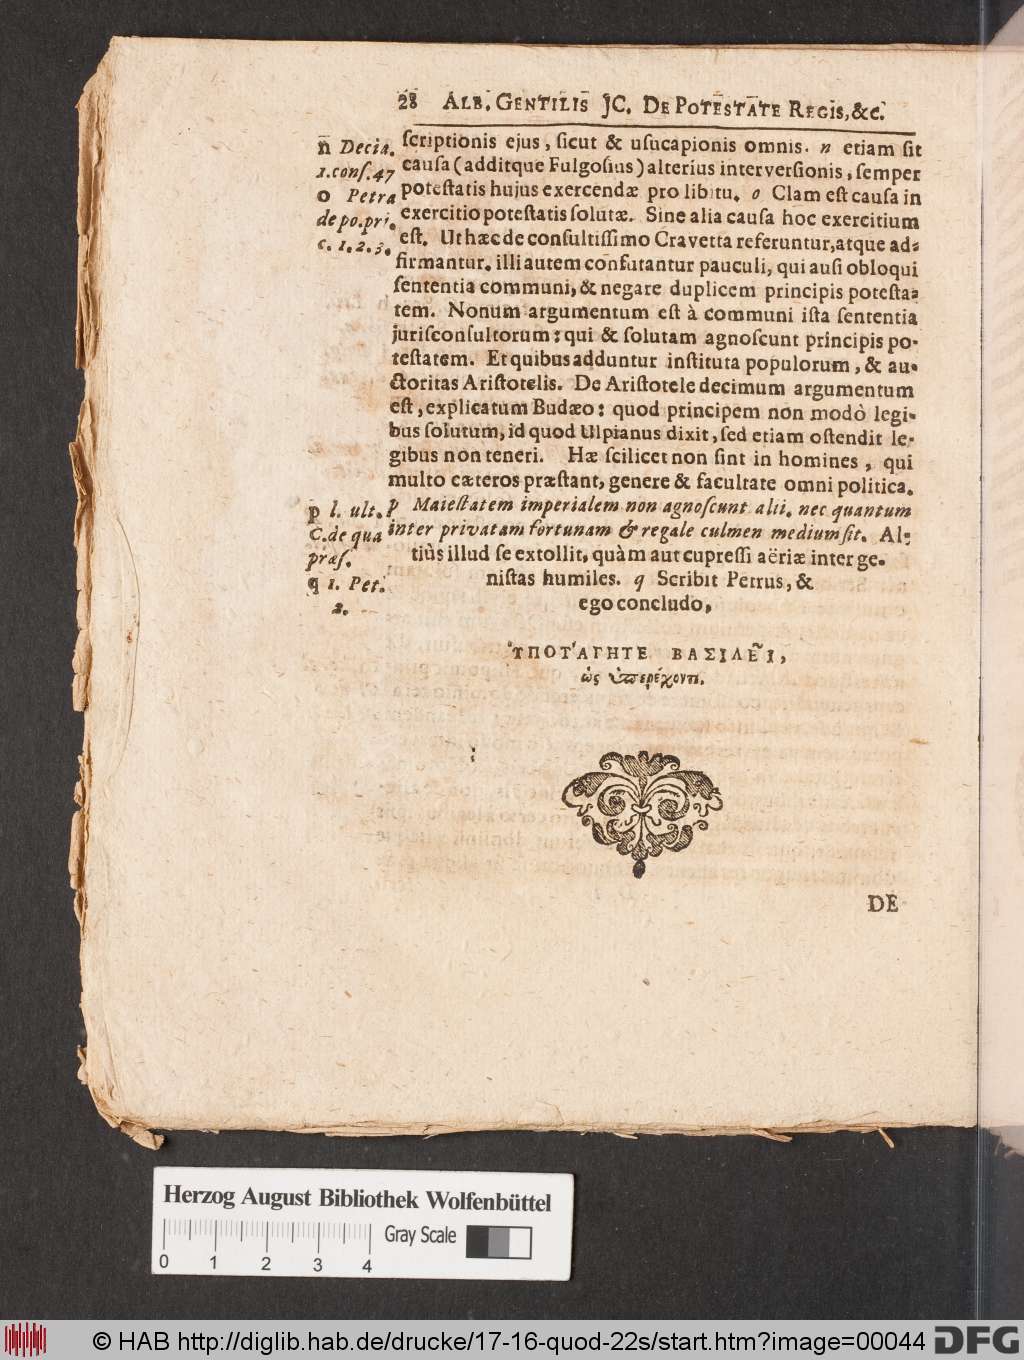 28 ALB. GENTILIS JC. DE POTESTATE REGIS, &c.
ſcriptionis ejus, ſicut & uſucapionis omnis. n etiam ſit
cauſa (additque Fulgoſius) alterius interverſionis, ſemper
poteſtatis hujus exercendæ pro libitu. o Clam eſt cauſa in
exercitio poteſtatis ſolutæ. Sine alia cauſa hoc exercitium
eſt. Ut hæc de conſultiſſimo Cravetta referuntur, atque ad-
firmantur. illi autem confutantur pauculi, qui auſi obloqui
ſententia communi, & negare duplicem principis poteſta-
tem. Nonum argumentum eſt à communi iſta ſententia
juriſconſultorum: qui & ſolutam agnoſcunt principis po-
teſtatem. Et quibus adduntur inſtituta populorum, & au-
ctoritas Ariſtotelis. De Ariſtotele decimum argumentum
eſt, explicatum Budæo: quod principem non modò legi-
bus ſolutum, id quod Ulpianus dixit, ſed etiam oſtendit le-
gibus non teneri. Hæ ſcilicet non ſint in homines, qui
multo cæteros præſtant, genere & facultate omni politica.
p Maieſtatem imperialem non agnoſcunt alii. nec quantum
inter privatam fortunam & regale culmen medium ſit. Al-
tiùs illud ſe extollit, quàm aut cupreſſi aëriæ inter ge-
niſtas humiles. q Scribit Petrus, &
ego concludo,
ὙΠΟΤΆΓΗΤΕ ΒΑΣΙΛΕ͂Ι,
ὡς ὑπερέχοντι.
n Decia.
1. conſ. 47
o Petra
de po. pri.
c. 1. 2. 3.
p l. ult.
C. de qua
præſ.
q 1. Pet.
2.
DE
Herzog August Bibliothek Wolfenbüttel
Gray Scale
0 1 2 3 4
© HAB http://diglib.hab.de/drucke/17-16-quod-22s/start.htm?image=00044
DFG